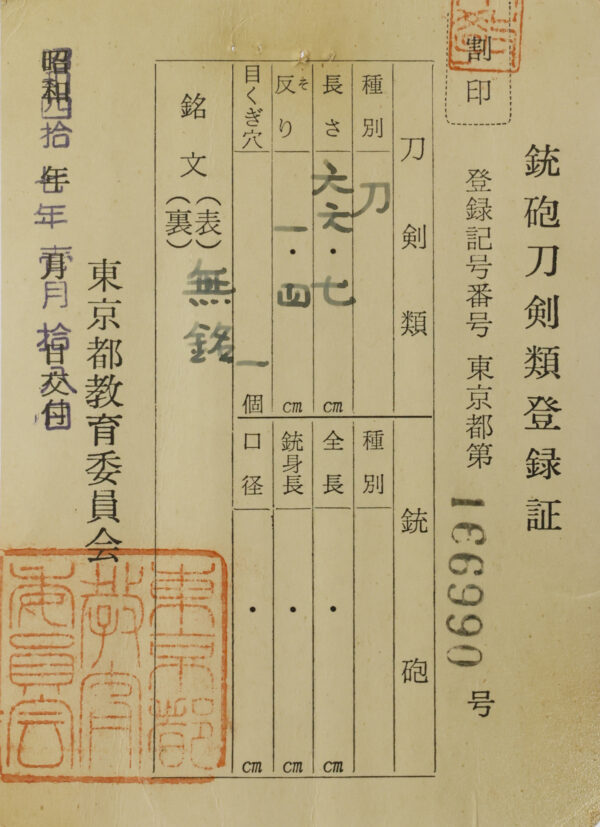 銃砲刀剣類登録証
割印
登録記号番号 東京都第 号
刀剣類
種別 刀
長さ 六六・七 cm
反り そ 一・四 cm
目くぎ穴 一 個
銘文 (表) 無銘
(裏)
銃砲
種別
全長 ・ cm
銃身長 ・ cm
口径 ・ cm
東京都教育委員会
昭和四拾 年壹月拾 日交付
東京都
教育
委員会